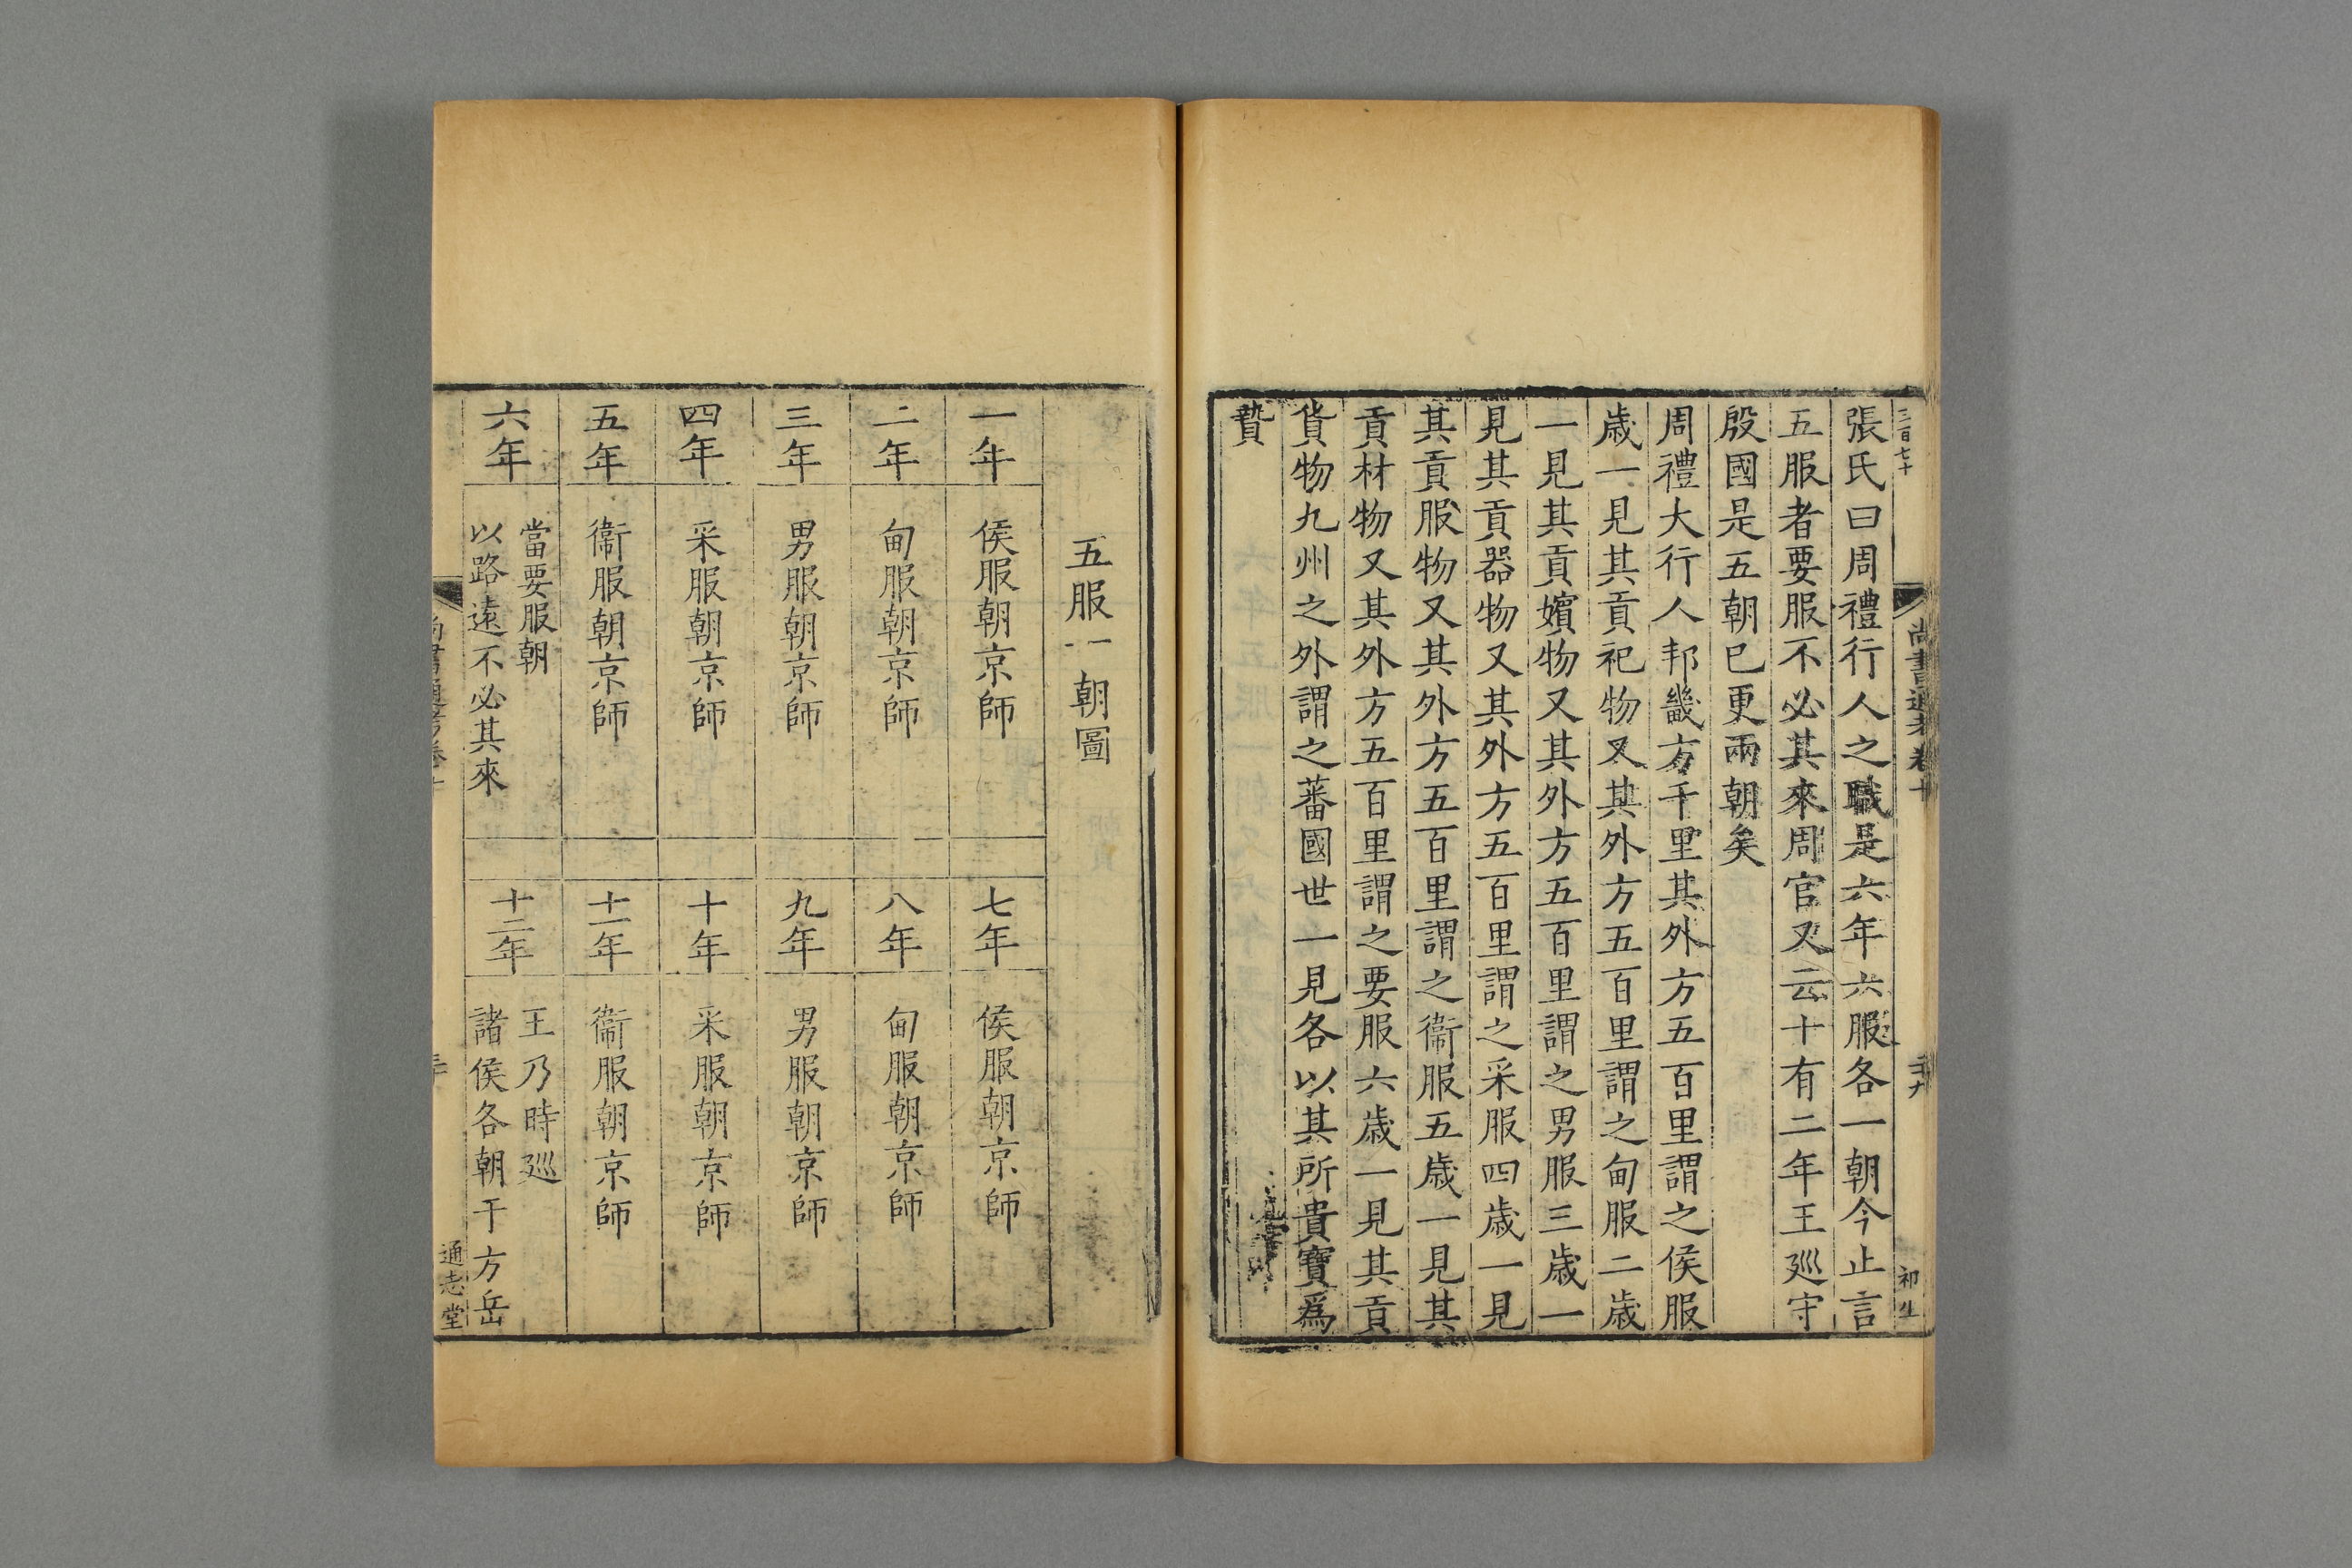 張氏曰周禮行人之職是六年六服各一朝今止言
五服者要服不必其來周官又云十有二年王廵守
殷國是五朝已更兩朝矣
周禮大行人邦畿方千里其外方五百里謂之侯服
歲一見其貢祀物又其外方五百里謂之甸服二歲
一見其貢嬪物又其外方五百里謂之男服三歲一
見其貢器物又其外方五百里謂之采服四歲一見
其貢服物又其外方五百里謂之衞服五歲一見其
貢材物又其外方五百里謂之要服六歲一見其貢
貨物九州之外謂之蕃國世一見各以其所貴寶爲
贄
三百七十
尚書通考卷十
二十九
初生
五服一朝圖
一年
侯服朝京師
二年
甸服朝京師
三年
男服朝京師
四年
采服朝京師
五年
衞服朝京師
六年
當要服朝
以路遠不必其來
七年
侯服朝京師
八年
甸服朝京師
九年
男服朝京師
十年
采服朝京師
十一年
衞服朝京師
十二年
王乃時廵
諸侯各朝于方岳
尚書通考卷十
三十
通志堂